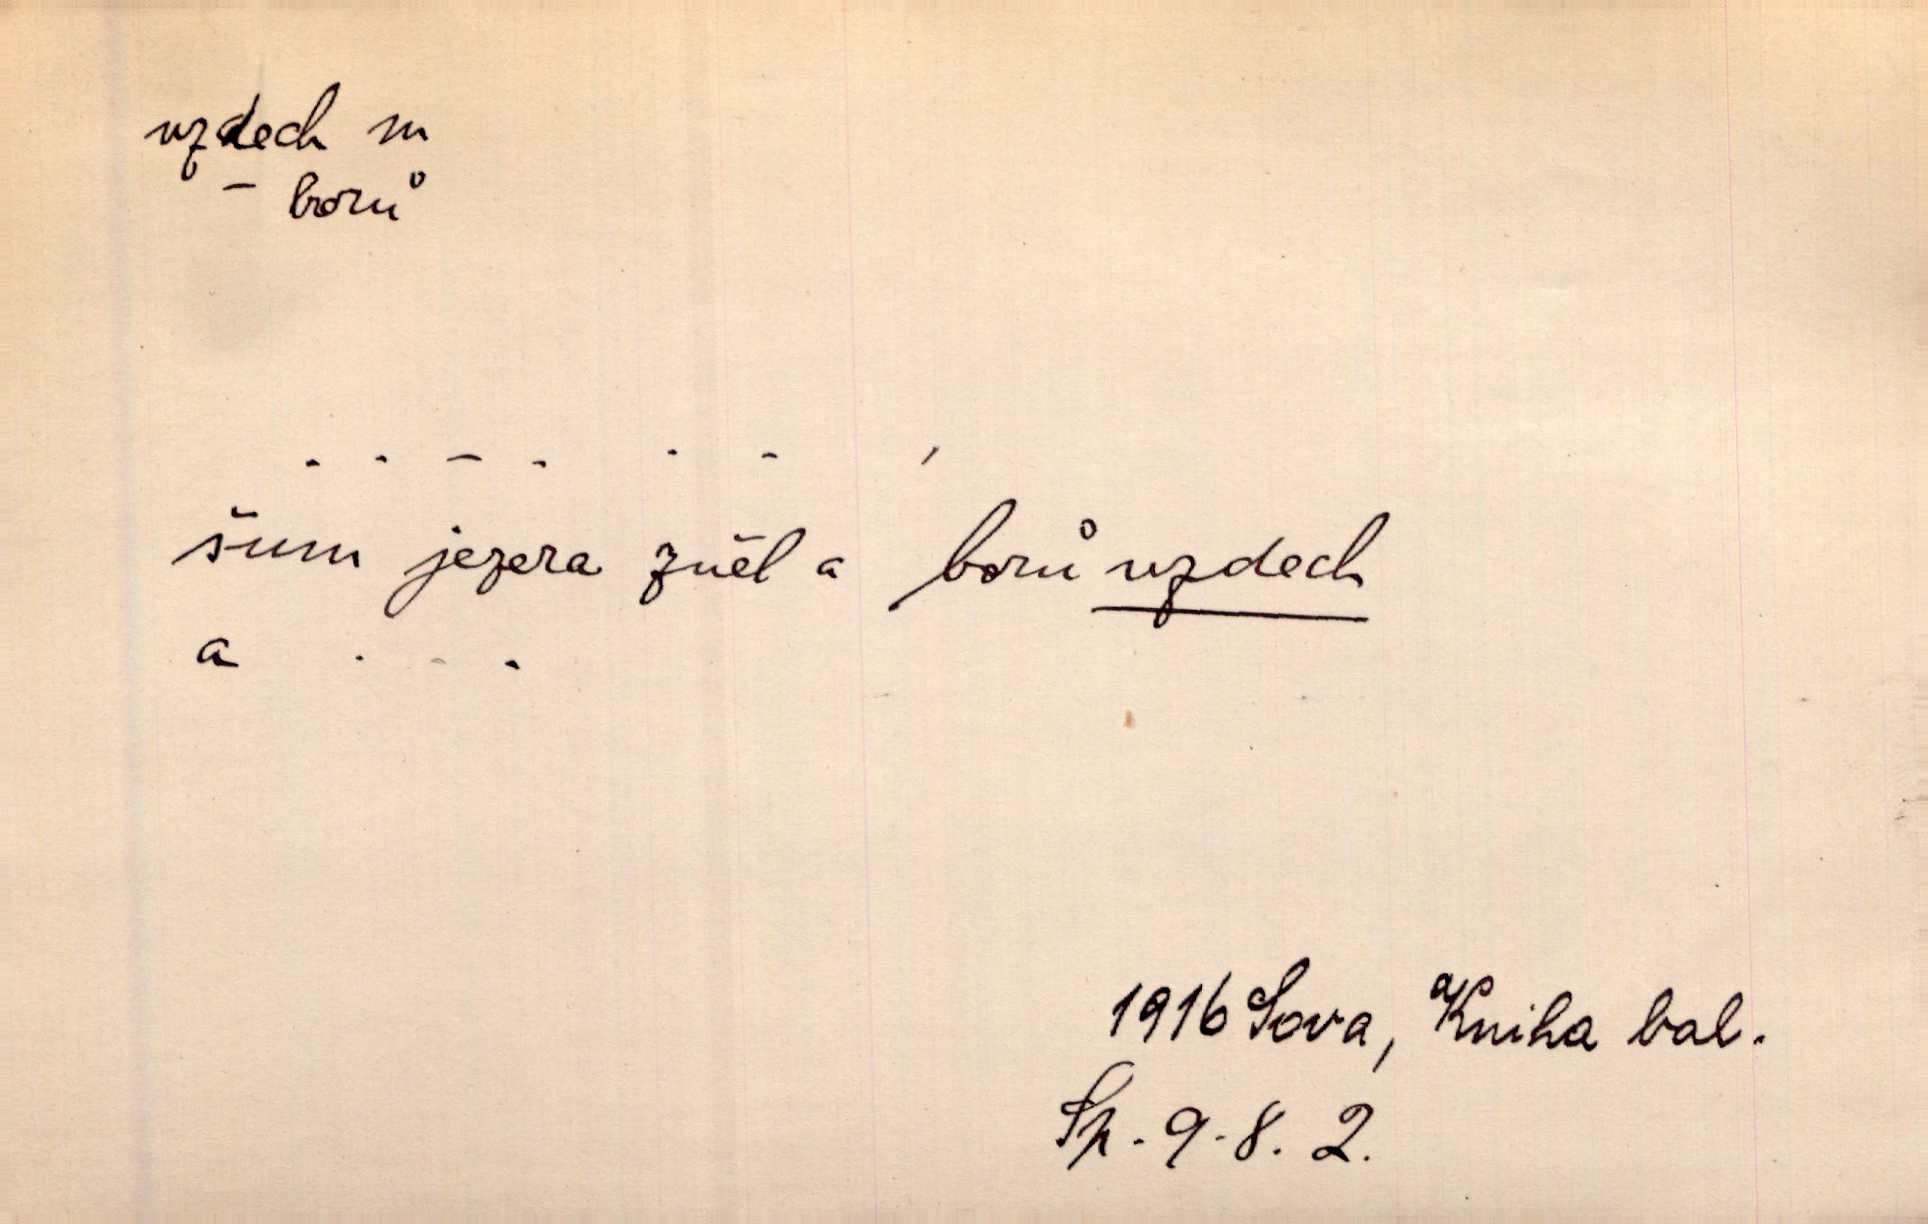 vzdech m
– borů
. . – . . - ,
šum jezera zněl a borů vzdech
a . - .
1916 Sova, Kniha bal.
Sp. 9. 8. 2.